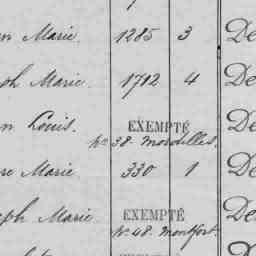 Marie. 1285 3 De
ph Marie. 1712 4 De
n Louis. EXEMPTÉ De
No 38. Marie 330 1 De
eph Marie EXEMPTÉ De
No 48. Montfort.